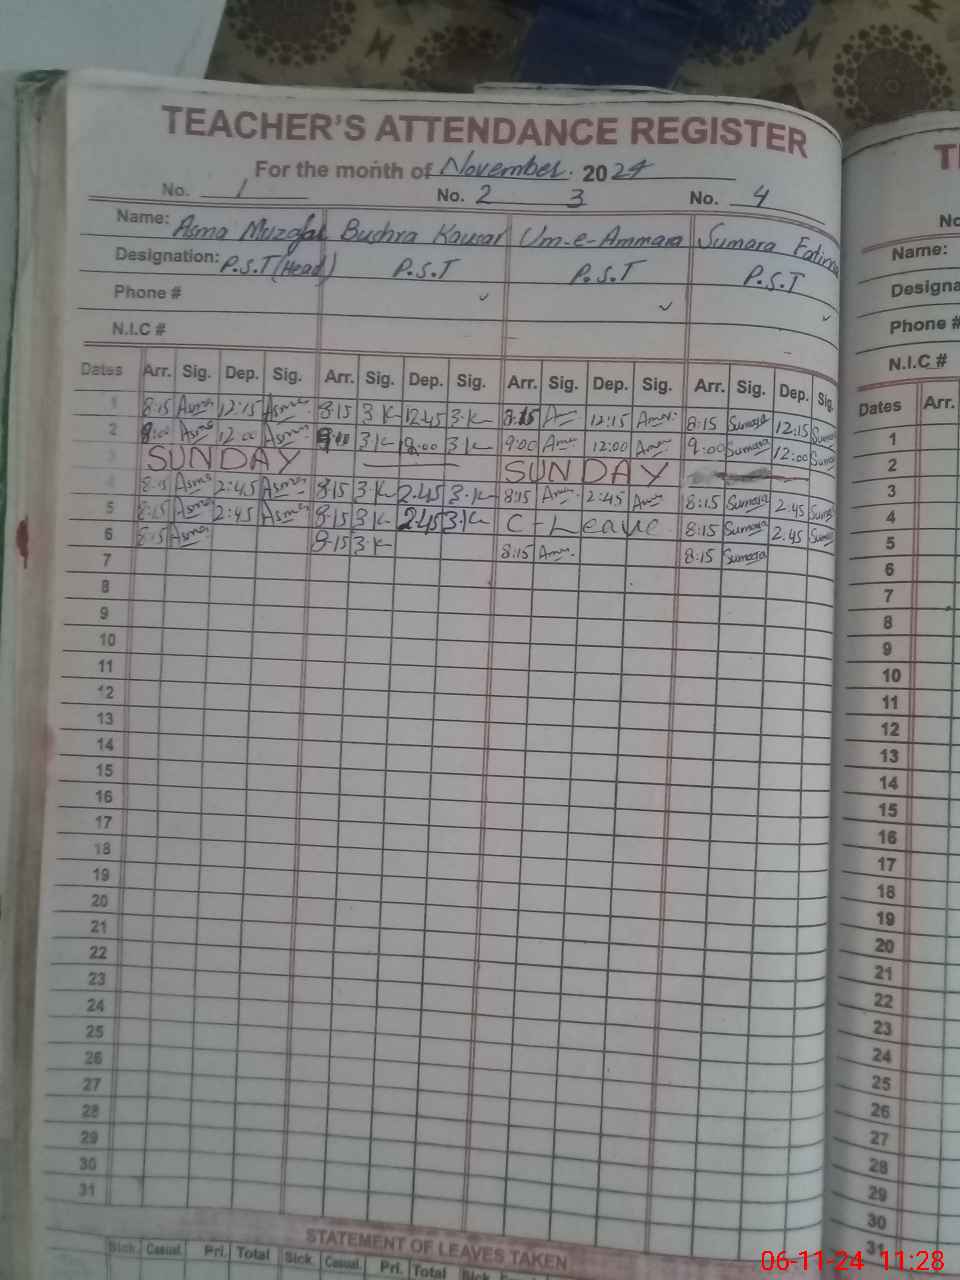 TEACHER'S ATTENDANCE REGISTER
For the month of November. 2024
No. 1 No. 2 3 No. 4
Name: Asma Muzafar Bushra Kausar Um-e-Ammara Sumara Fatima
Designation: P.S.T (Head) P.S.T P.S.T P.S.T
Phone #
N.I.C #
Dates Arr. Sig. Dep. Sig. Arr. Sig. Dep. Sig. Arr. Sig. Dep. Sig. Arr. Sig. Dep. Sig.
1 8:15 Asma 12:15 Asma 8:15 3-K 12:45 3-K 8:15 Am 12:15 Amm. 8:15 Sumara 12:15 Suma
2 9:00 Asma 12:00 Asma 3-K 12:00 3-K 9:00 Amm 12:00 Amm 9:00 Sumara 12:00 Suma
3 SUNDAY SUNDAY
4 8:15 Asma 2:45 Asma 8:15 3-K 2:45 3-K 8:15 Amm 2:45 Amm 8:15 Sumara 2:45 Suma
5 8:15 Asma 2:45 Asma 8:15 3-K 2:45 3-K C-Leave 8:15 Sumara 2:45 Suma
6 8:15 Asma 8:15 3-K 8:15 Amm. 8:15 Sumara
7
8
9
10
11
12
13
14
15
16
17
18
19
20
21
22
23
24
25
26
27
28
29
30
31
STATEMENT OF LEAVES TAKEN
Sick. Casual. Pri. Total Sick. Casual. Pri. Total Sick.
T
No
Name:
Designa
Phone #
N.I.C #
Dates Arr.
1
2
3
4
5
6
7
8
9
10
11
12
13
14
15
16
17
18
19
20
21
22
23
24
25
26
27
28
29
30
31
06-11-24 11:28